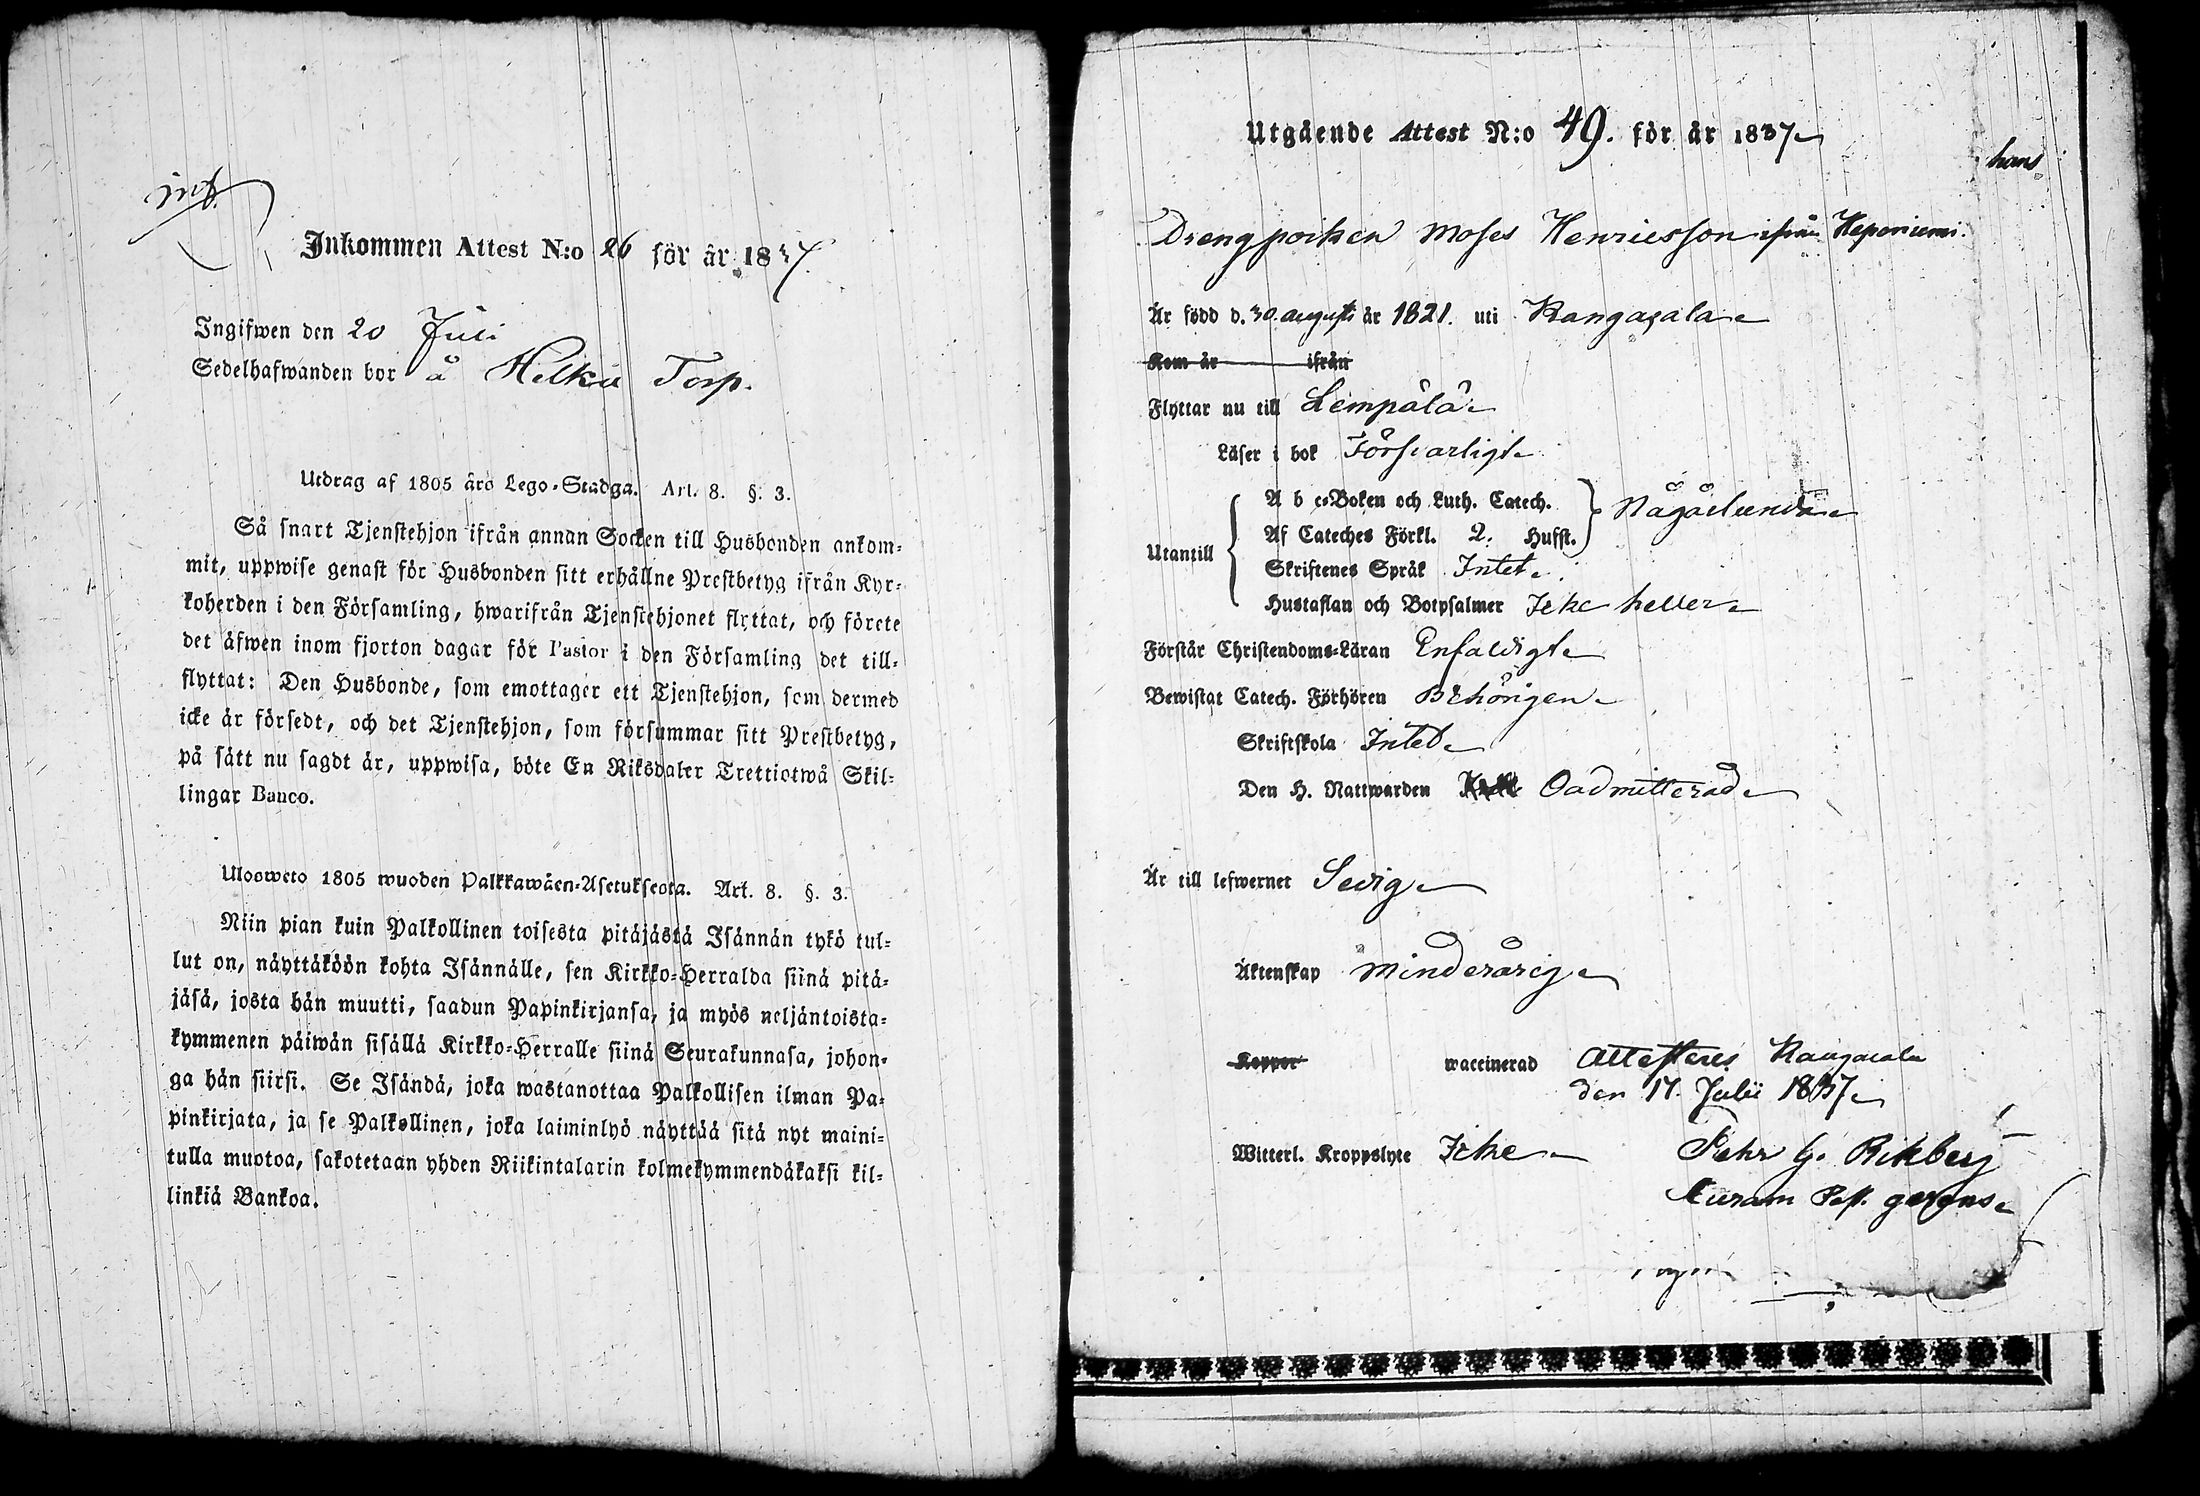 Inkommen Attest N:o 26 för år 1837.
Ingifwen den 20 Juli
Sedelhafwanden bor å Torp.
Utdrag af 1805 års Lego-Stadga. Art. 8. §. 3.
Så snart Tjenstehjon ifrån annan Socken till Husbonden ankom-
mit, uppwise genast för Husbonden sitt erhållne Prestbetyg ifrån Kyr-
koherden i den Församling, hwarifrån Tjenstehjonet flyttat, och förete
det äfwen inom fjorton dagar för Pastor i den Församling det till-
flyttat: Den Husbonde, som emottager ett Tjenstehjon, som dermed
icke är försedt, och det Tjenstehjon, som försummar sitt Prestbetyg,
på sätt nu sagdt är, uppwisa, böte En Riksdaler Trettiotwå Skil-
lingar Banco.
Ulosweto 1805 wuoden Palkkawäen-Asetuksesta. Art. 8. §. 3.
Niin pian kuin Palkollinen toisesta pitäjästä Isännän tykö tul-
lut on, näyttäköön kohta Isännälle, sen Kirkko-Herralda siinä pitä-
jäsä, josta hän muutti, saadun Papinkirjansa, ja myös neljäntoista-
kymmenen päiwän sisällä Kirkko-Herralle siinä Seurakunnasa, johon-
ga hän siirsi. Se Isändä, joka wastanottaa Palkollisen ilman Pa-
pinkirjata, ja se Palkollinen, joka laiminlyö näyttää sitä nyt maini-
tulla muotoa, sakotetaan yhden Riikintalarin kolmekymmendäkaksi kil-
linkiä Bankoa.
Utgående Attest N:o 49. för år 1837
hans
Drengpoiken Moses Henriesson ifrån Heponiemi.
Är född d. 30 augusti år 1821. uti Kangasala
Kom år ifrån
Flyttar nu till Lempälä
Läser i bok Försvarligt
A b c-Boken och Luth. Catech. Någåelunda
Af Cateches Förkl. 2. Hufst.
Utantill
Skriftenes Språk Intet
Hustaflan och Botpsalmer Icke heller
Förstår Christendoms-Läran Enfaldigt
Bewistat Catech. Förhören Behörigen
Skriftskola Intet
Den H. Nattwarden Oadmitterad
Är till lefwernet Sedig
Äktenskap minderårig
Koppor waccinerad Attesteres Kangasala
den 17. Julii 1837
Witterl. Kroppslyte Icke Pehr G. Rikberg
Curam Past. gerens